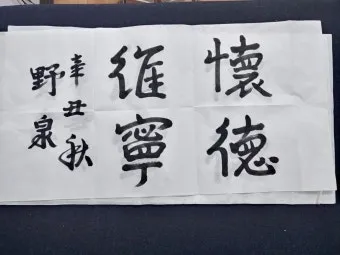 懷德
維寧
辛丑秋
野泉